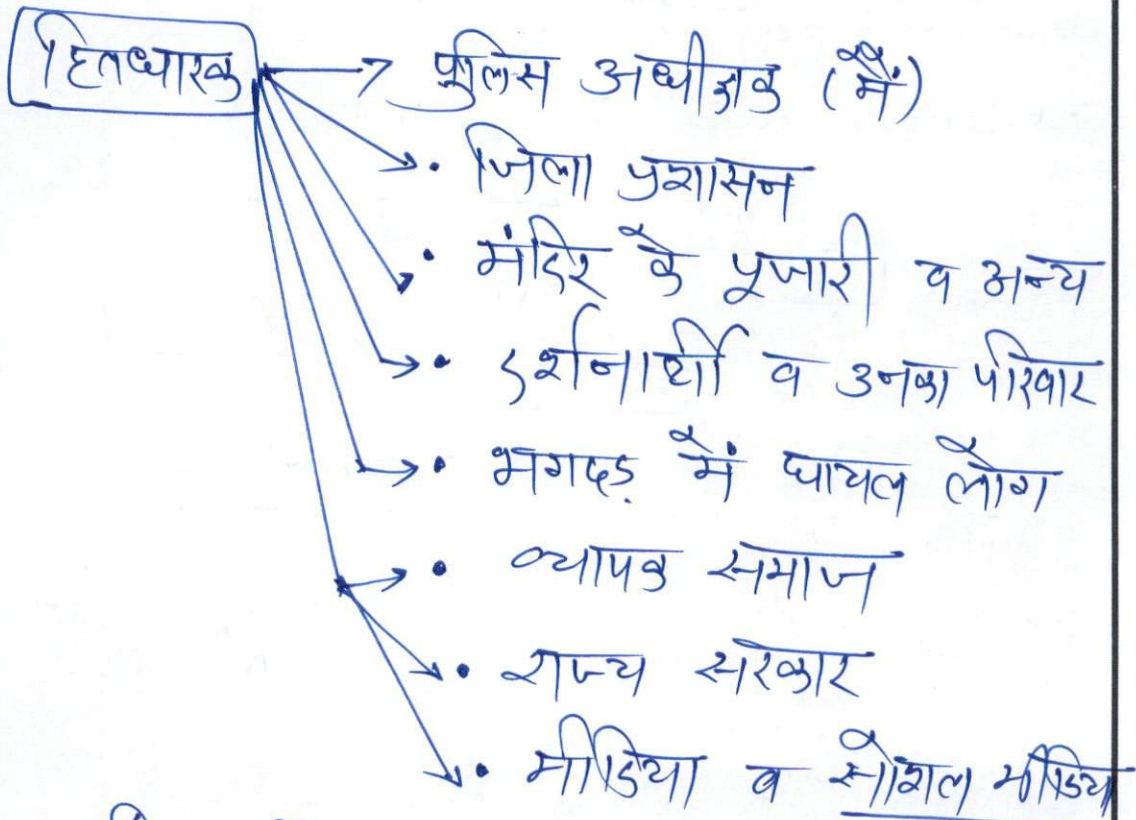 हितधारक → पुलिस अधीक्षक (मैं)
• जिला प्रशासन
• मंदिर के पूजारी व अन्य
• दर्शनार्थी व उनका परिवार
• भगदड़ में घायल लोग
• व्यापक समाज
• राज्य सरकार
• मीडिया व सोशल मीडिया